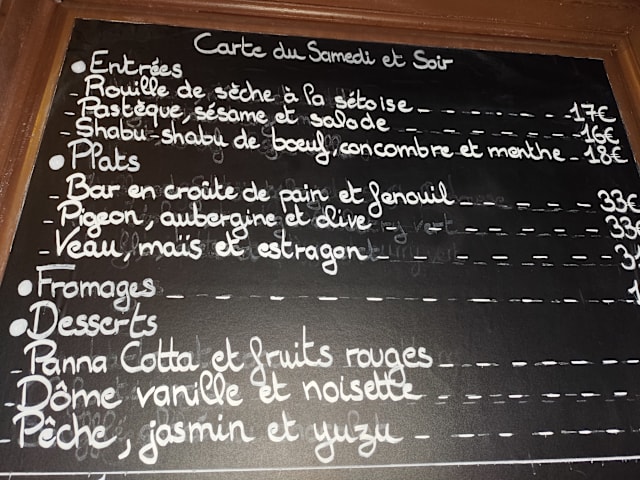 Carte du Samedi et Soir
• Entrées
- Rouille de sèche à la sétoise - - - - - - 17€
- Pastèque, sésame et salade - - - - - - 16€
- Shabu-shabu de bœuf, concombre et menthe - 18€
• Plats
- Bar en croûte de pain et fenouil - - - - - 33€
- Pigeon, aubergine et olive - - - - - - 33€
- Veau, maïs et estragon - - - - - - 3
• Fromages - - - - - - - - - - 1
• Desserts
- Panna Cotta et fruits rouges - - - - - -
- Dôme vanille et noisette - - - - - -
- Pêche, jasmin et yuzu - - - - - -